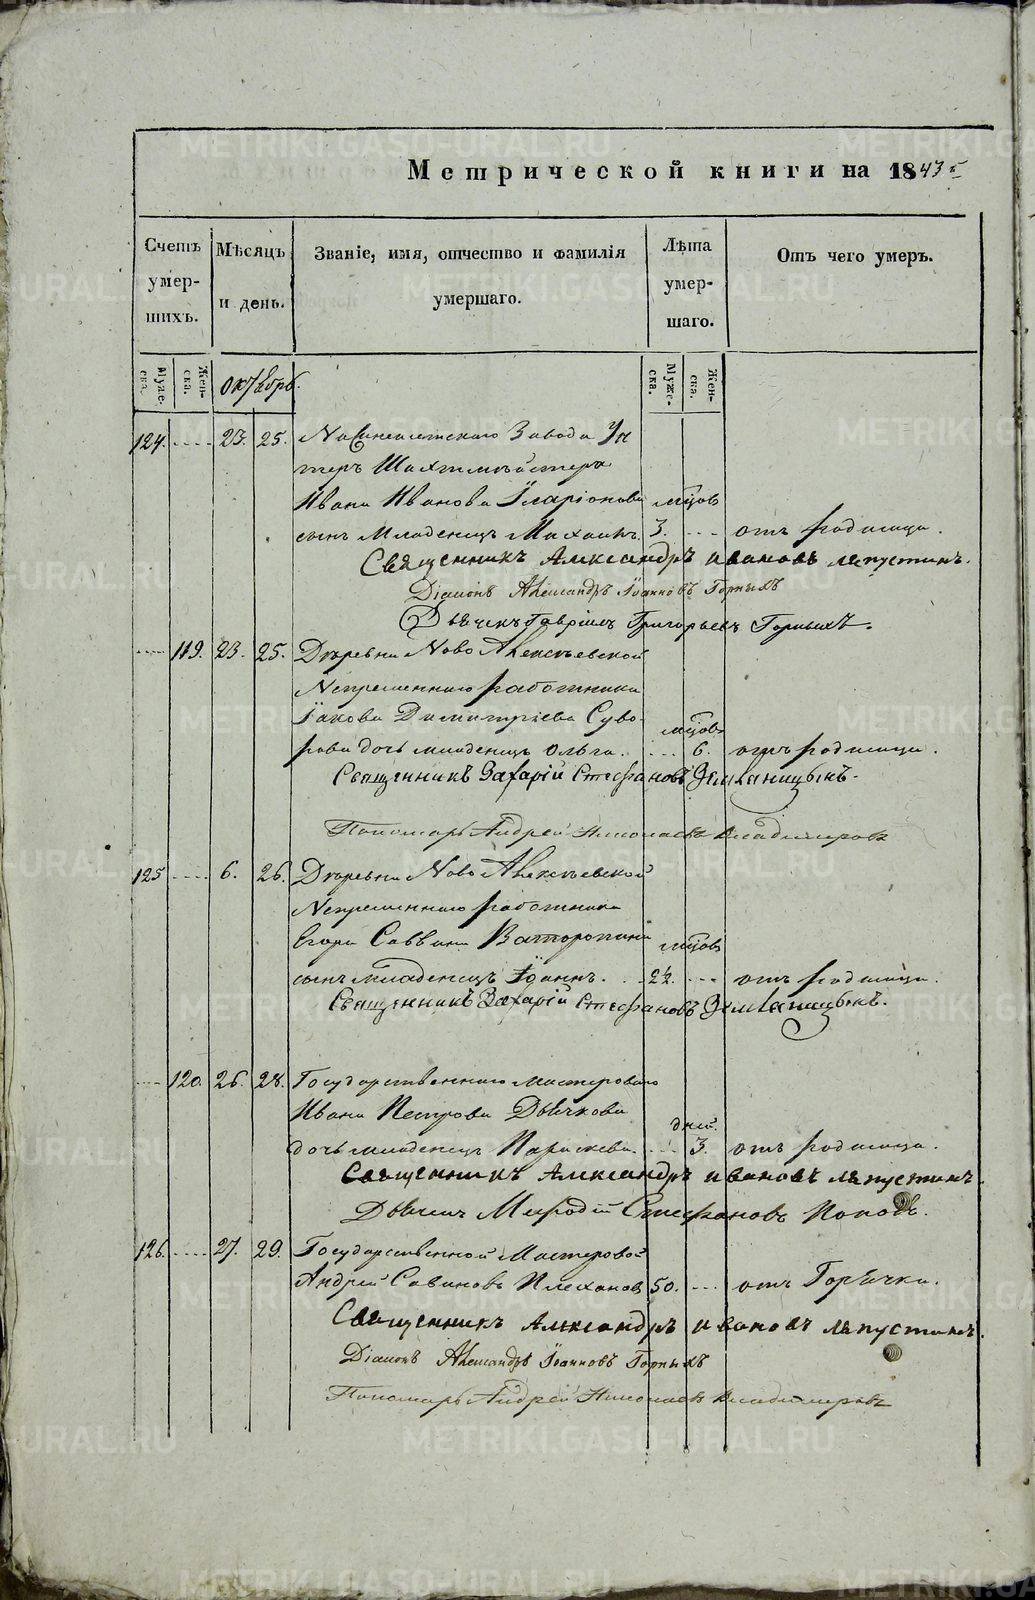 Метрической книги на 1843 г.
Счетъ умер-шихъ. Мѣсяцъ и день. Званіе, имя, отчество и фамилія умершаго. Лѣта умер-шаго. Отъ чего умеръ.
Муже-ска. Жен-ска. октябрь. Муже-ска. Жен-ска.
124. 23. 25. Завода Ун
теръ Шахтмейстера
Ивана Иванова Иларіонова мцовъ
сынъ младенецъ Михаилъ. 3. отъ родимца.
Священникъ Александръ Ивановъ Ляпустинъ.
Діаконъ Александръ Іоанновъ Горныхъ
Дьячекъ Гавріилъ Григорьевъ Горныхъ.
119. 23. 25. Деревни Ново Алексѣевской
Непременнаго работника
Іакова Димитріева Суво-
рова дочь младенецъ Ольга. мцовъ 6. отъ родимца.
Священникъ Захарій Стефановъ Земляницынъ.
Пономарь Андрей Николаевъ Владимировъ
125 6. 26. Деревни Ново Алексѣевской
Непременнаго работника
Егора Саввина Ваторопина мцовъ
сынъ младенецъ Іоаннъ. 2½. отъ родимца.
Священникъ Захарій Стефановъ Земляницынъ.
120. 26. 28. Государственнаго мастероваго
Ивана Петрова Дьячкова дней.
дочь младенецъ Параскева. 3. отъ родимца.
Священникъ Александръ Ивановъ Ляпустинъ.
Дьячекъ Мефодій Стефановъ Поповъ.
126. 27. 29. Государственной Мастеровой
Андрей Савиновъ Плехановъ 50. отъ Горячки.
Священникъ Александръ Ивановъ Ляпустинъ.
Діаконъ Александръ Іоанновъ Горныхъ
Пономарь Андрей Николаевъ Владимировъ
METRIKI.GASO-URAL.RU